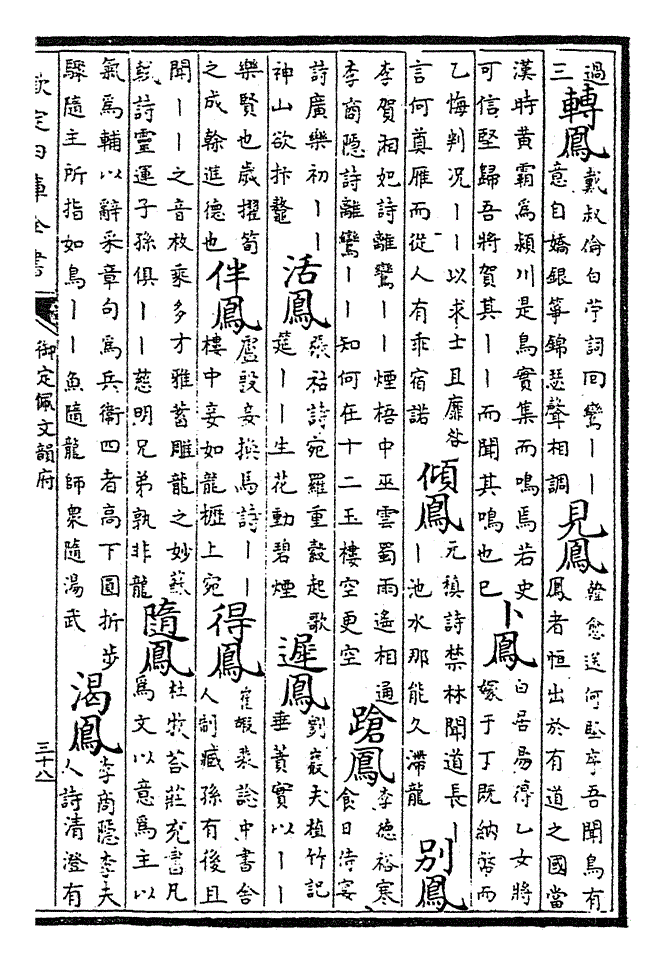 過
三
轉鳳
戴叔倫白苧詞回鸞丨丨
意自嬌銀箏錦瑟聲相調
見鳳
韓愈送何堅序吾聞鳥有
鳳者恒出於有道之國當
漢時黄霸為潁川是鳥實集而鳴焉若史
可信堅歸吾將賀其丨丨而聞其鳴也已
卜鳳
白居易得乙女將
嫁于丁既納幣而
乙悔判况丨丨以求士且靡咎
言何奠雁而從人有乖宿諾
傾鳳
元稹詩禁林聞道長丨
丨池水那能久滯龍
别鳳
李賀湘妃詩離鸞丨丨煙梧中巫雲蜀雨遙相通
李商隐詩離鸞丨丨知何在十二玉樓空更空
蹌鳳
李德裕寒
食日侍宴
詩廣樂初丨丨
神山欲抃鼇
活鳳
張祜詩宛羅重縠起歌
筵丨丨生花動碧煙
遲鳳
劉巖夫植竹記
垂蕡實以丨丨
樂賢也歳擢筍
之成榦進德也
伴鳳
盧殷妾換馬詩丨丨
樓中妾如龍櫪上宛
得鳳
崔嘏裴諗中書舍
人制臧孫有後且
聞丨丨之音枚乘多才雅蓄雕龍之妙蘇
軾詩靈運子孫俱丨丨慈明兄弟孰非龍
隨鳳
杜牧荅莊充書凡
為文以意為主以
氣為輔以辭采章句為兵衛四者高下圓折步
驟隨主所指如鳥丨丨魚隨龍師衆隨湯武
渴鳳
李商隱李夫
人詩清澄有
欽定四庫全書
御定佩文韻府
三十八